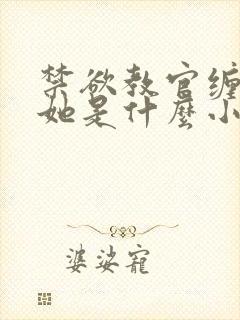 禁欲教官缠
她是什麼小
婆娑寵